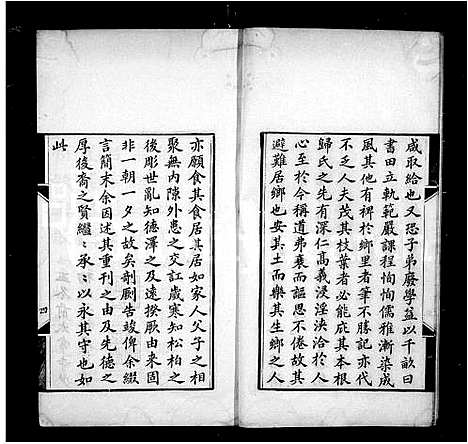 咸取給也又恐子弟廢學益以千畝曰
書田立軌範嚴課程恂恂儒雅漸染成
風其他有裨於鄉里者筆不勝記亦代
不乏人夫茂其枝葉者必能庇其本根
歸氏之先有深仁高義浸淫浹洽於人
心者至於今稱道弗衰而謳思不倦故其
避難居鄉也安其土而樂其生鄉之人
亦願食其食居其居如家人父子之相
聚無內隙外患之交訌歲寒知松柏之
後彫世亂知德澤之及遠揆厥由來固
非一朝一夕之故矣剞劂告竣俾余綴
言簡末余因述其重刊之由及先德之
厚後裔之賢繩繩承承以永其守也如
此
四